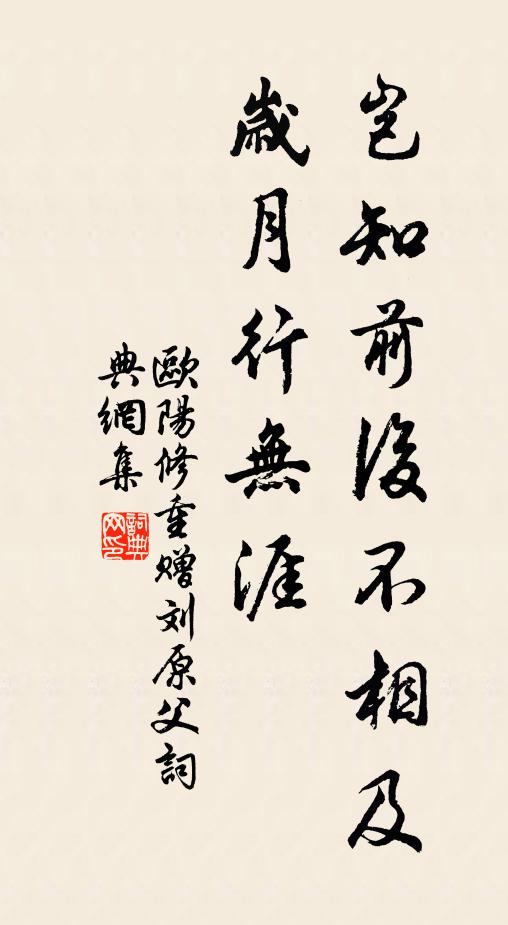 岂知前後不相及
歲月行無涯
歐陽修重赠刘原父詞
典網集
詞典
网印